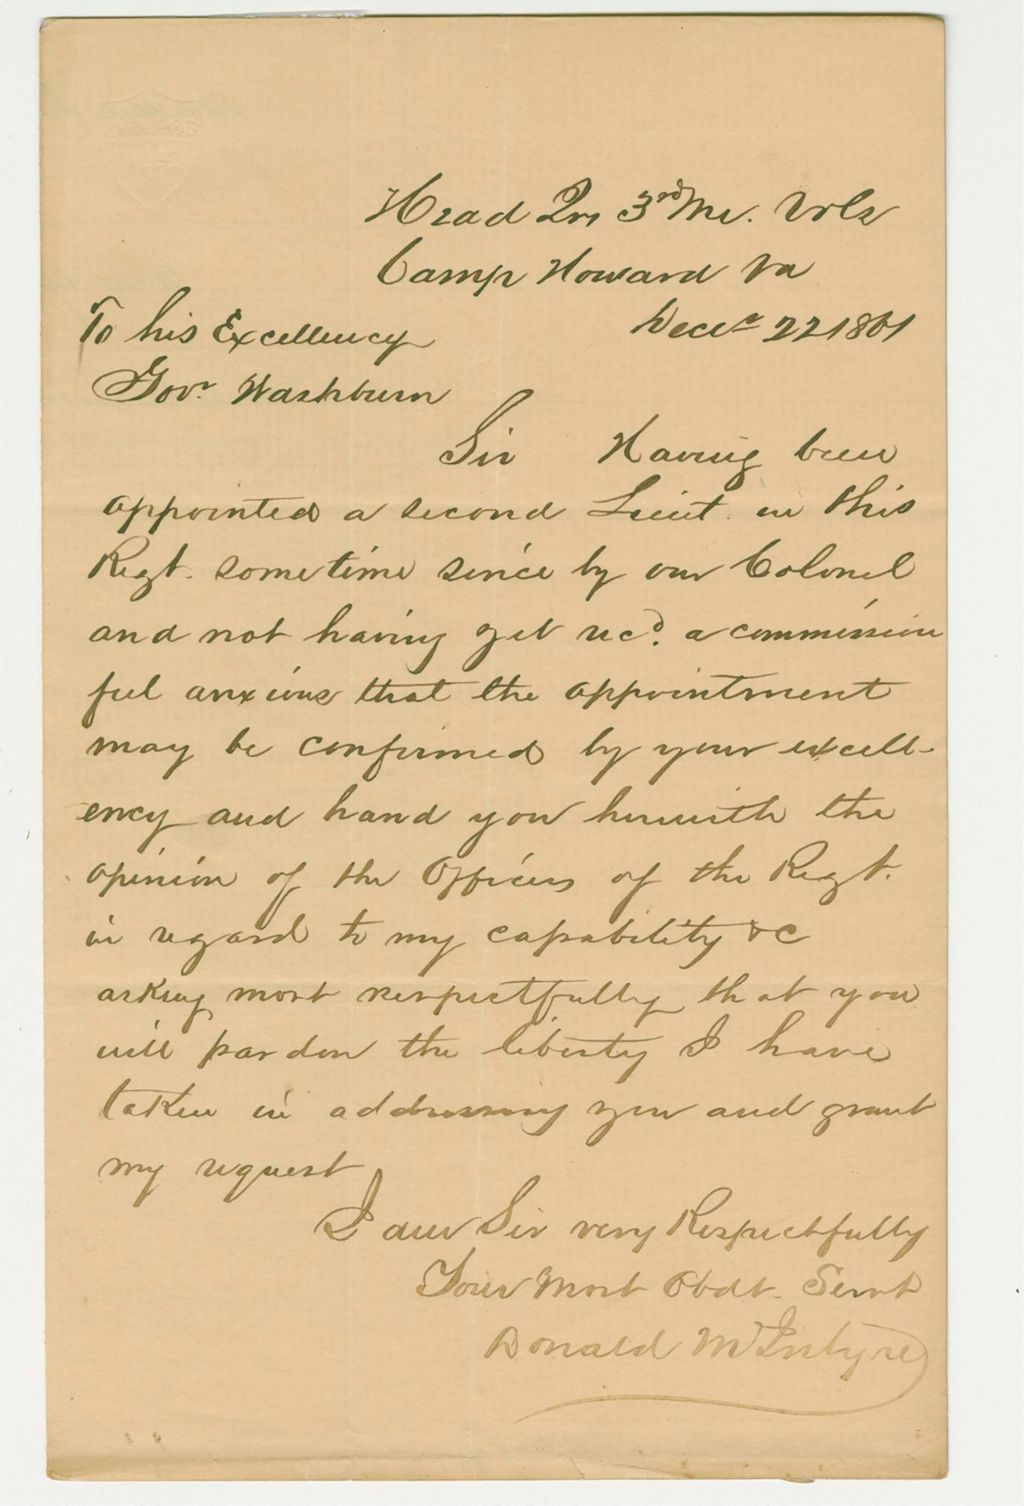 Head Qrs 3rd Me. Vols
Camp Howard Va
Decr 22 1861
To his Excellency
Govr. Washburn
Sir Having been
appointed a second Lieut. in this
Regt. sometime since by our Colonel
and not having yet recd. a commission
feel anxious that the appointment
may be confirmed by your excell-
ency and hand you herewith the
opinion of the Officers of the Regt.
in regard to my capability &c
asking most respectfully that you
will pardon the liberty I have
taken in addressing you and grant
my request
I am Sir very Respectfully
Your Most Obdt. Servt
Donald McIntyre